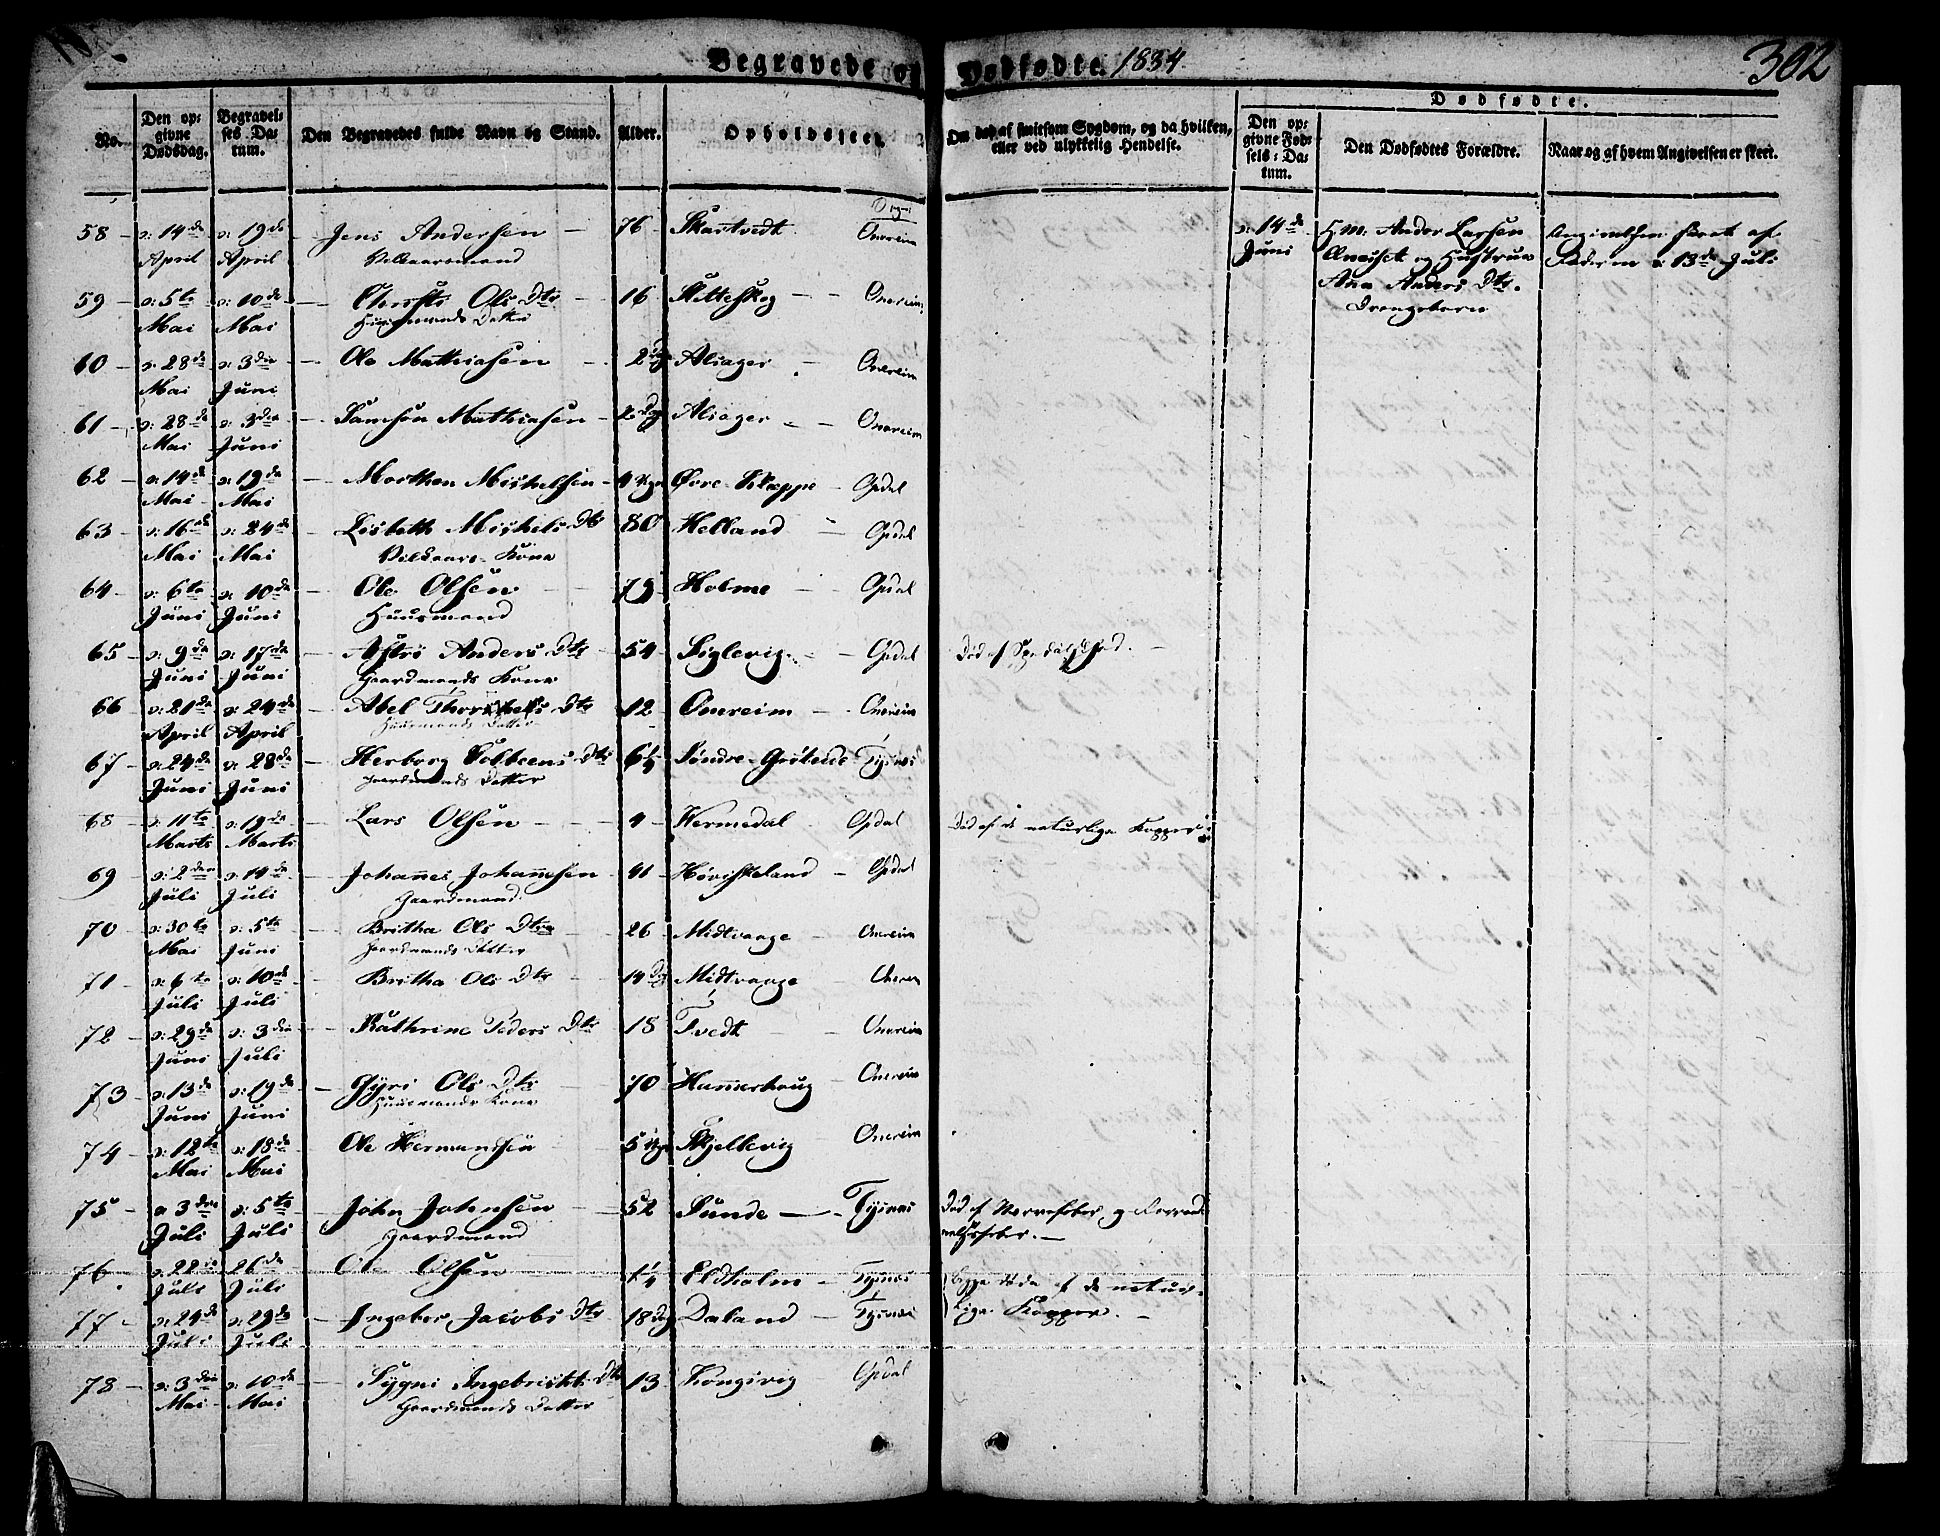 Begravede og Dødfødte. 1834. 302
No. Den opgivne Dødsdag. Begravelses Datum. Den Begravedes fulde Navn og Stand. Alder. Opholdssted. Om død af smitsom Sygdom, og da hvilken, eller ved ulykkelig Hendelse.
Dødfødte.
Den opgivne Fødsels-Datum. Den Dødfødtes Forældre. Naar og af hvem Angivelsen er skeet.
Sogn
58 – d: 14de April d: 19de April Jens Andersen – 76 – Skartvedt Onereim
59 – d: 5te Mai d: 10de Mai Ols Dtr – 16 Skitteskog – – Onereim
Huusmands Datter
60 – d: 28de Mai d: 3die Juni – Ole Mathiasen – 2 Dg Aliager – Onereim
61 – d: 28de Mai d: 3die Juni – Samson Mathiasen – 2 Dg Aliager – – Onereim
62 – d: 14de Mai d: 19de Mai – Morthen Michelsen – 4 Ugr Øvre Skeppe – Opdal
63 – d: 16de Mai d: 24de Mai – Lisbeth Michels Dtr 80 Helland – Opdal
Vilkaars Kone
64 – d: 6te Juni d: 10de Juni – Ole Olsen – – 79 Holme – – Opdal
Huusmand
65 – d: 9de Juni d: 17de Juni – Astri Anders Dtr – 54 – Siglevig. – Opdal Død af Spedalskhed. –
Gaardmands Kone
66 – d: 21de April d: 24de April – Abel Dtr 12 Onereim – – Onereim
Huusmands Datter
67 – d: 24de Juni d: 28de Juni – Herborg Dtr 6½ Søndre Tysnes
Gaardmands Datter
68 – d: 11te Marts d: 19de Marts – Lars Olsen – – – 4 – Hermedal Opdal Død af de naturlige Kopper.
69 – d: 2den Juli d: 14de Juli – Johannes Johannesen – 41 – Høviskeland – Opdal
Gaardmand
70 – d: 30te Mai d: 5te Juni – Britha Ols Dtr – 26 – Midtvange – Onereim
Gaardmands Datter
71 – d: 6te Juli d: 10de Juli – Britha Ols Dtr – 14 Dg Midtvange – Onereim
72 – d: 29de Juni d: 3die Juli – Kathrine Peders Dtr – 18 – Tvedt – – Onereim
73 – d: 13de Juni d: 19de Juni – Gyri Ols Dtr – 70 Hammerhaug – Onereim
Huusmands Kone
74 – d: 12te Mai d: 18de Mai – Ole Hermansen 5 Ugr Skjellevig Onereim
75 – d: 3die Juli d: 5te Juli – John Johnsen – 52 – Sunde – – Tysnes Død af Nervefeber og
Gaardmand
76 – d: 22de Juli 26de Juli – Ole Olsen – 1¼ Eldholm – Tysnes Begge døde af de natur-
77 – d: 24de Juli d: 29de Juli – Ingebor Jacobs Dtr 18 Dg Daland – Tysnes lige Kopper. –
78 – d: 3die Mai – d: 10de Mai – Sygni Ingebricts Dtr 13 – Kongsvig Opdal
Gaardmands Datter
d: 14de Juni Hm: Anders Larsen Angivelsen skeet af
og Hustrue Faderen d: 13de Juli
Ana Anders Dtr.
Drengebarn